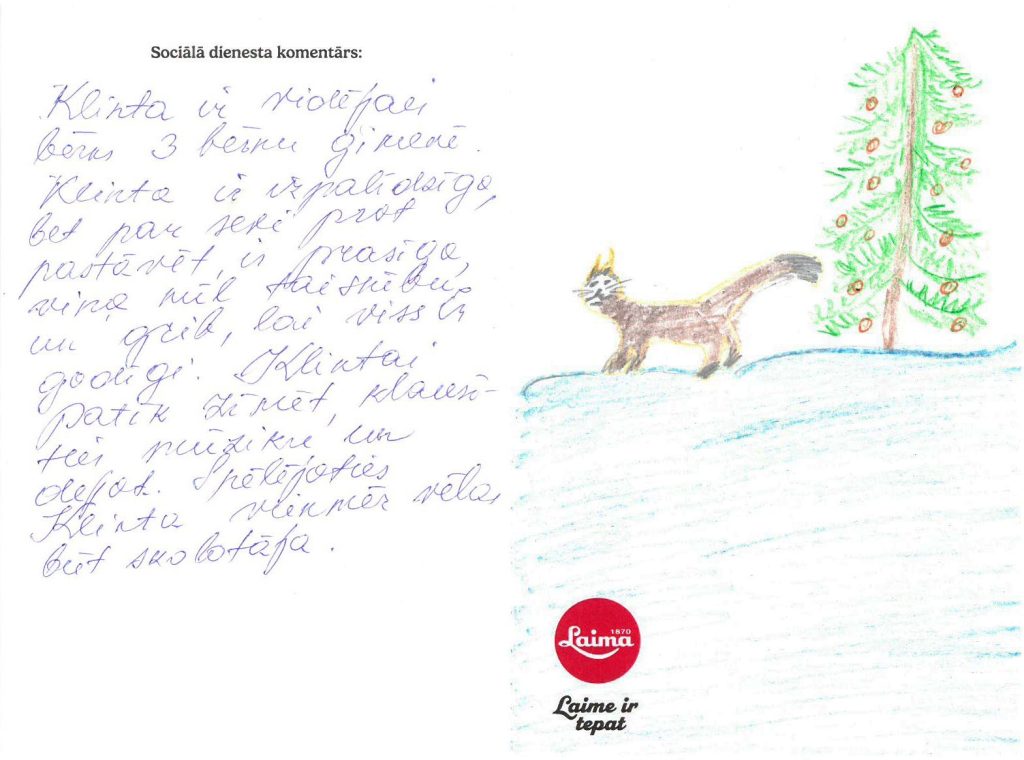 Sociālā dienesta komentārs:
Klinta ir vidējais
bērns 3 bērnu ģimenē.
Klinta ir izpalīdzīga,
bet par sevi prot
pastāvēt, ir prasīga,
viņa mīl taisnību
un grib, lai viss ir
godīgi. Klintai
patīk zīmēt, klausī-
ties mūziku un
dejot. Spēlējoties
Klinta vienmēr vēlas
būt skolotāja.
1870
Laima
Laime ir
tepat